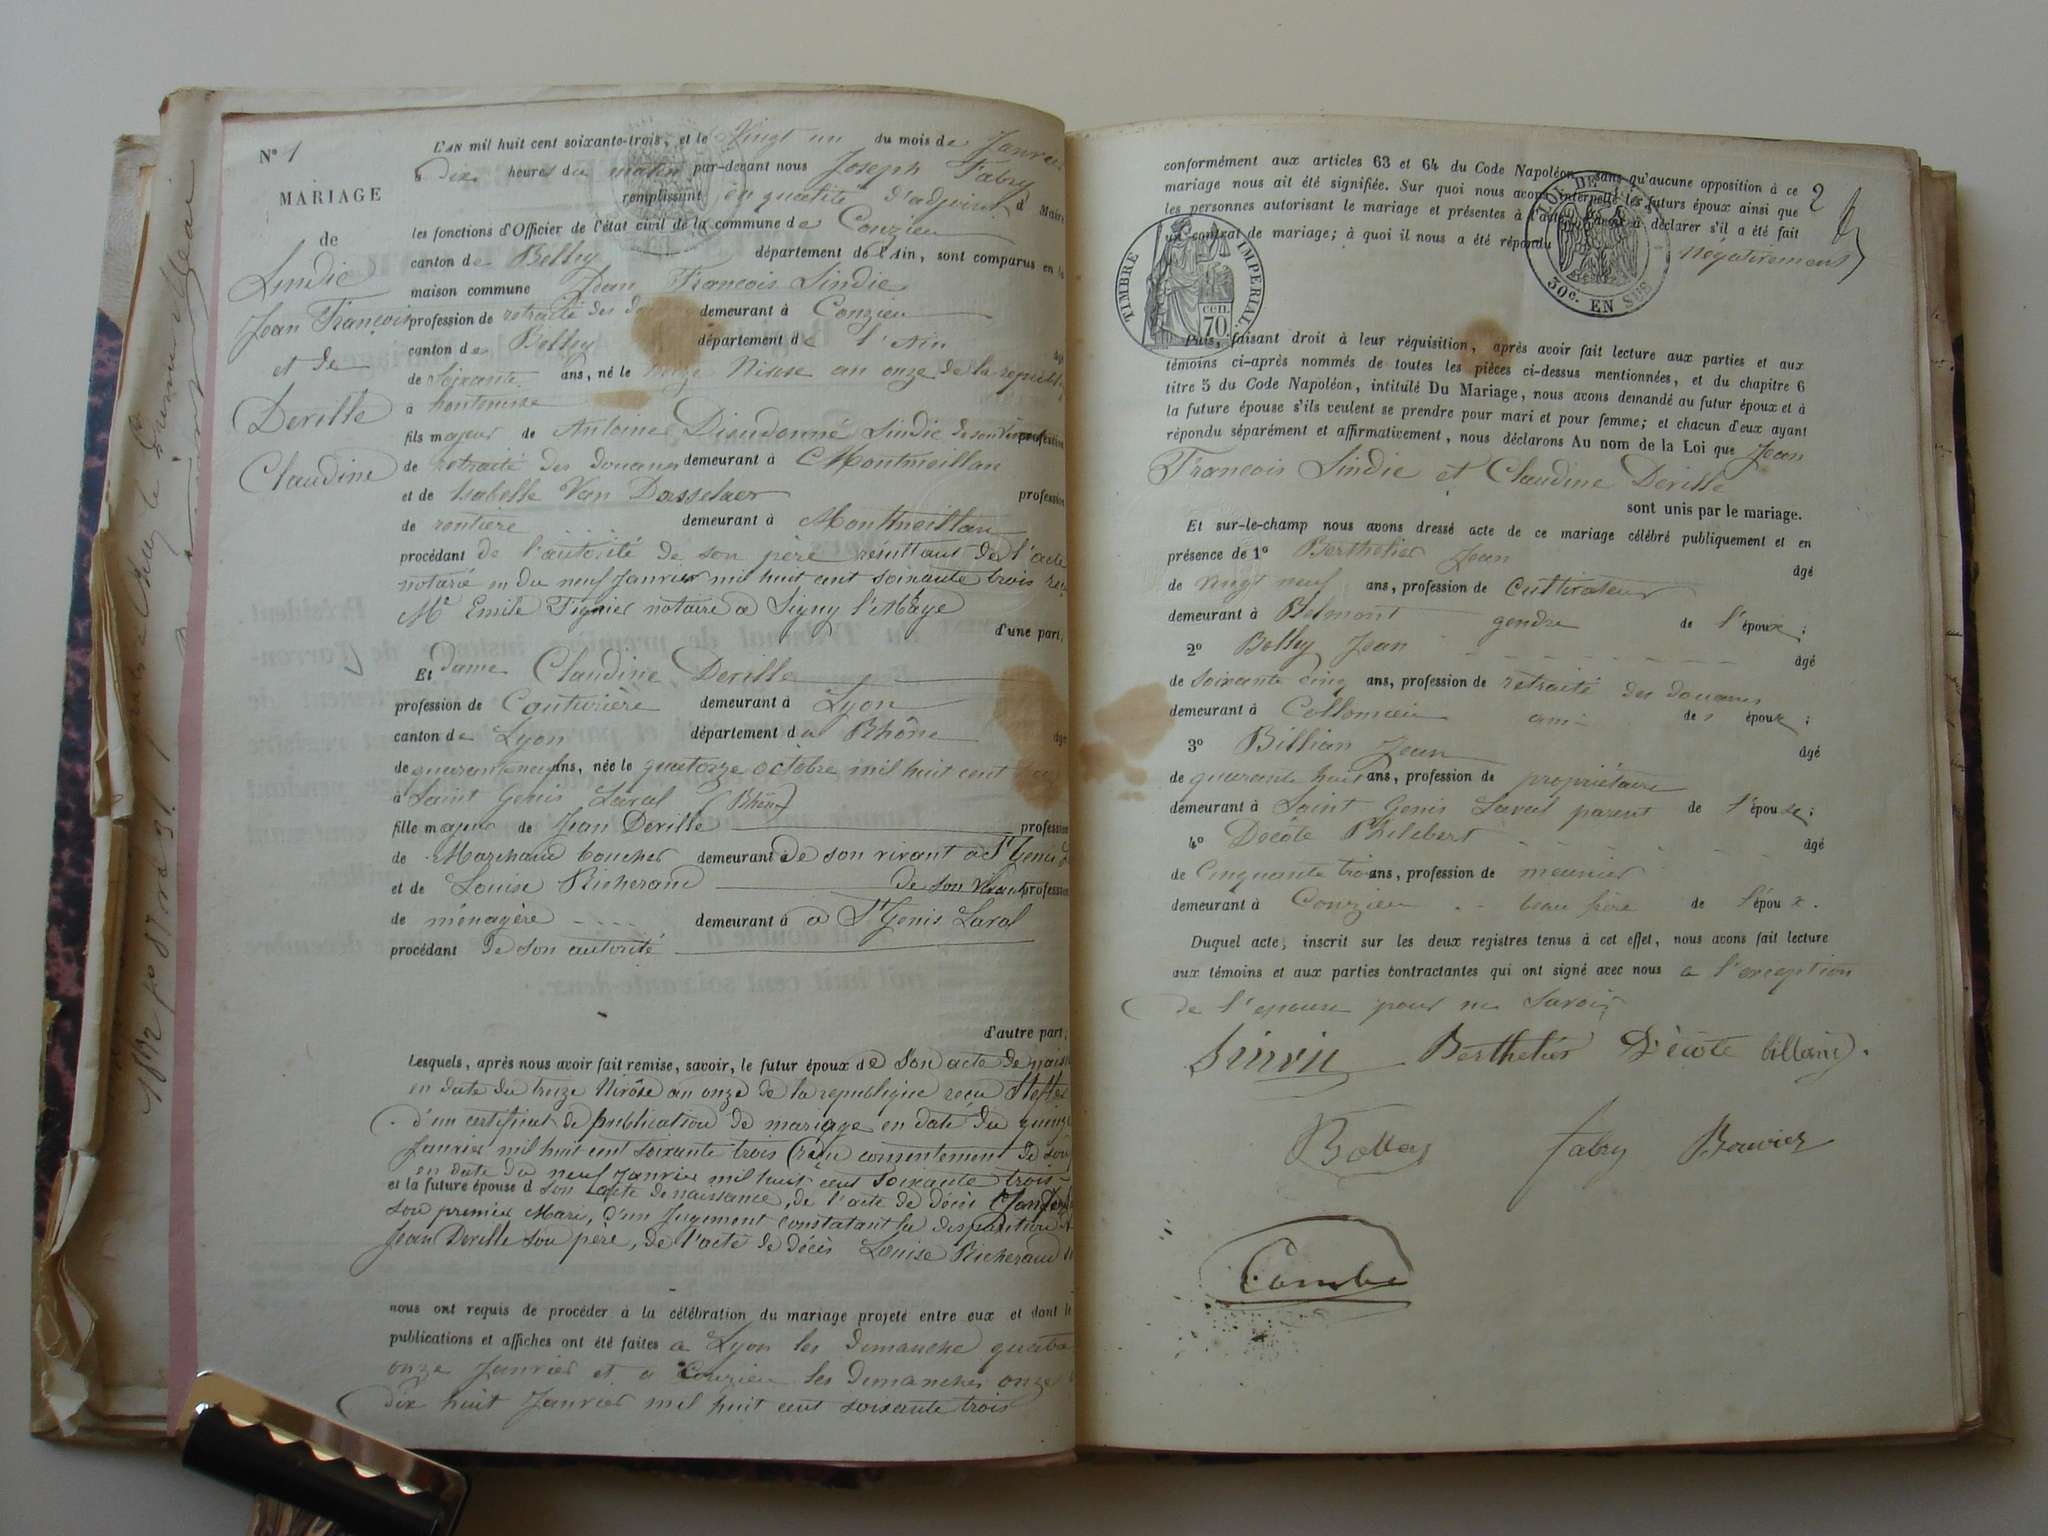 N° 1
MARIAGE
de
Sindic
Jean François
et de
Deville
Claudine
L'AN mil huit cent soixante-trois, et le Vingt un du mois de Janvier
à Dix heures du matin par-devant nous Joseph Fabry
remplissant en qualité d'adjoint Maire
les fonctions d'Officier de l'état civil de la commune de Conzieu
canton de Belley département de l'Ain, sont comparus en la
maison commune Jean François Sindic
profession de retraité des demeurant à Conzieu
canton de Belley département de l'Ain âgé
de Soixante ans, né le Nivose an onze de la
à
fils majeur de Antoine Dieudonné Sindic de son vivant profession
de retraité des douanes demeurant à Montmeillan
et de Isabelle Van Dasselaer profession
de rentière demeurant à Montmeillan
procédant de l'autorité de son père résultant de l'acte
notarié en du neuf Janvier mil huit cent soixante trois reçu
Me Emile Tignier notaire a Signy l'Abbaye
d'une part,
Et Dame Claudine Deville
profession de Couturière demeurant à Lyon
canton de Lyon département du Rhône âgé
de quarante neuf ans, née le quatorze octobre mil huit cent
à Saint Genis Laval (Rhône)
fille majeure de Jean Deville profession
de Marchand boucher demeurant à De son vivant a St Genis
et de Louise Richerand de son vivant profession
de ménagère demeurant à a St Genis Laval
procédant de son autorité
d'autre part;
Lesquels, après nous avoir fait remise, savoir, le futur époux de son acte de
en date du treize Nivôse an onze de la republique reçu
d'un certificat de publication de mariage en date du quinze
Janvier mil huit cent soixante trois consentement de son
en date du neuf Janvier mil huit cent soixante trois
et la future épouse d son acte de naissance, de l'acte de décès
son premier Mari, d'un Jugement constatant la disparition
Jean Deville son père, de l'acte de décès Louise Richerand
nous ont requis de procéder à la célébration du mariage projeté entre eux et dont les
publications et affiches ont été faites a Lyon les dimanche quatre
onze Janvier et a Conzieu les dimanches onze
dix huit Janvier mil huit cent soixante trois
2
conformément aux articles 63 et 64 du Code Napoléon, sans qu'aucune opposition à ce
mariage nous ait été signifiée. Sur quoi nous avons interpellé les futurs époux ainsi que
les personnes autorisant le mariage et présentes à l'acte, d'avoir à déclarer s'il a été fait
un contrat de mariage; à quoi il nous a été répondu négativement
TIMBRE IMPERIAL
CEN. 70.
LOI DE
30c. EN SUS
Puis, faisant droit à leur réquisition, après avoir fait lecture aux parties et aux
témoins ci-après nommés de toutes les pièces ci-dessus mentionnées, et du chapitre 6
titre 5 du Code Napoléon, intitulé Du Mariage, nous avons demandé au futur époux et à
la future épouse s'ils veulent se prendre pour mari et pour femme; et chacun d'eux ayant
répondu séparément et affirmativement, nous déclarons Au nom de la Loi que Jean
François Sindic et Claudine Deville
sont unis par le mariage.
Et sur-le-champ nous avons dressé acte de ce mariage célébré publiquement et en
présence de 1° Berthelier Jean âgé
de vingt neuf ans, profession de cultivateur
demeurant à Belmont gendre de l'épouse;
2° Belley Jean âgé
de soixante cinq ans, profession de retraité des douanes
demeurant à Collomieu ami de époux;
3° Billian Jean âgé
de quarante huit ans, profession de propriétaire
demeurant à Saint Genis Laval parent de l'épouse;
4° Decôte Philebert âgé
de Cinquante trois ans, profession de meunier
demeurant à Conzieu beau frère de l'époux.
Duquel acte, inscrit sur les deux registres tenus à cet effet, nous avons fait lecture
aux témoins et aux parties contractantes qui ont signé avec nous a l'exception
de l'epouse pour ne savoir
Berthelier Decôte billand.
Belley Fabry Bouvier
Combe